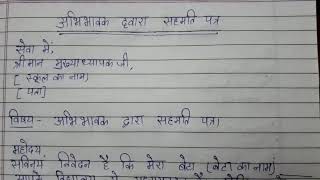 अभिभावक द्वारा सहमति पत्र
सेवा में,
श्रीमान मुख्याध्यापक जी,
[ स्कूल का नाम]
[ पता]
विषय- अभिभावक द्वारा सहमति पत्र।
महोदय
सविनय निवेदन है कि मेरा बेटा (बेटा का नाम)